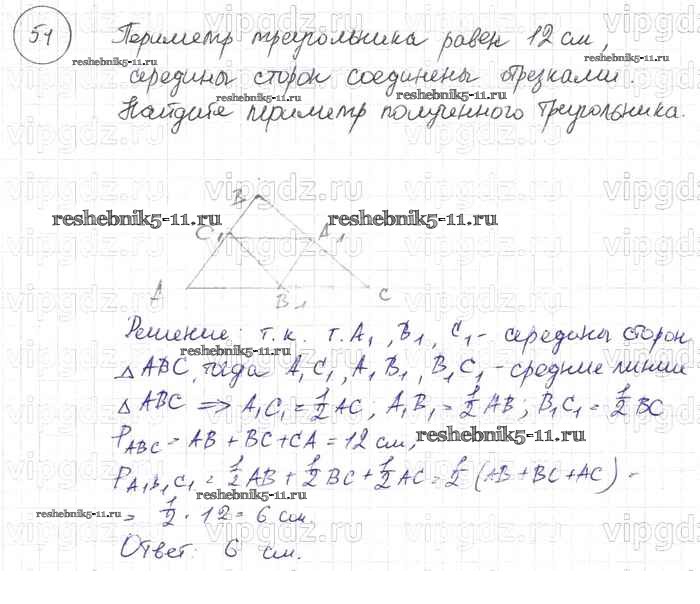 51 Периметр треугольника равен 12 см,
середины сторон соединены отрезками.
Найдите периметр полученного треугольника.
B
C₁ A₁
A B₁ C
Решение: т.к. т. A₁, B₁, C₁ - середины сторон
△ABC, тогда A₁C₁, A₁B₁, B₁C₁ - средние линии
△ABC ⇒ A₁C₁ = 1/2 AC; A₁B₁ = 1/2 AB; B₁C₁ = 1/2 BC
P_ABC = AB + BC + CA = 12 см,
P_A₁B₁C₁ = 1/2 AB + 1/2 BC + 1/2 AC = 1/2 (AB + BC + AC) =
= 1/2 · 12 = 6 см.
Ответ: 6 см.
reshebnik5-11.ru
vipgdz.ru